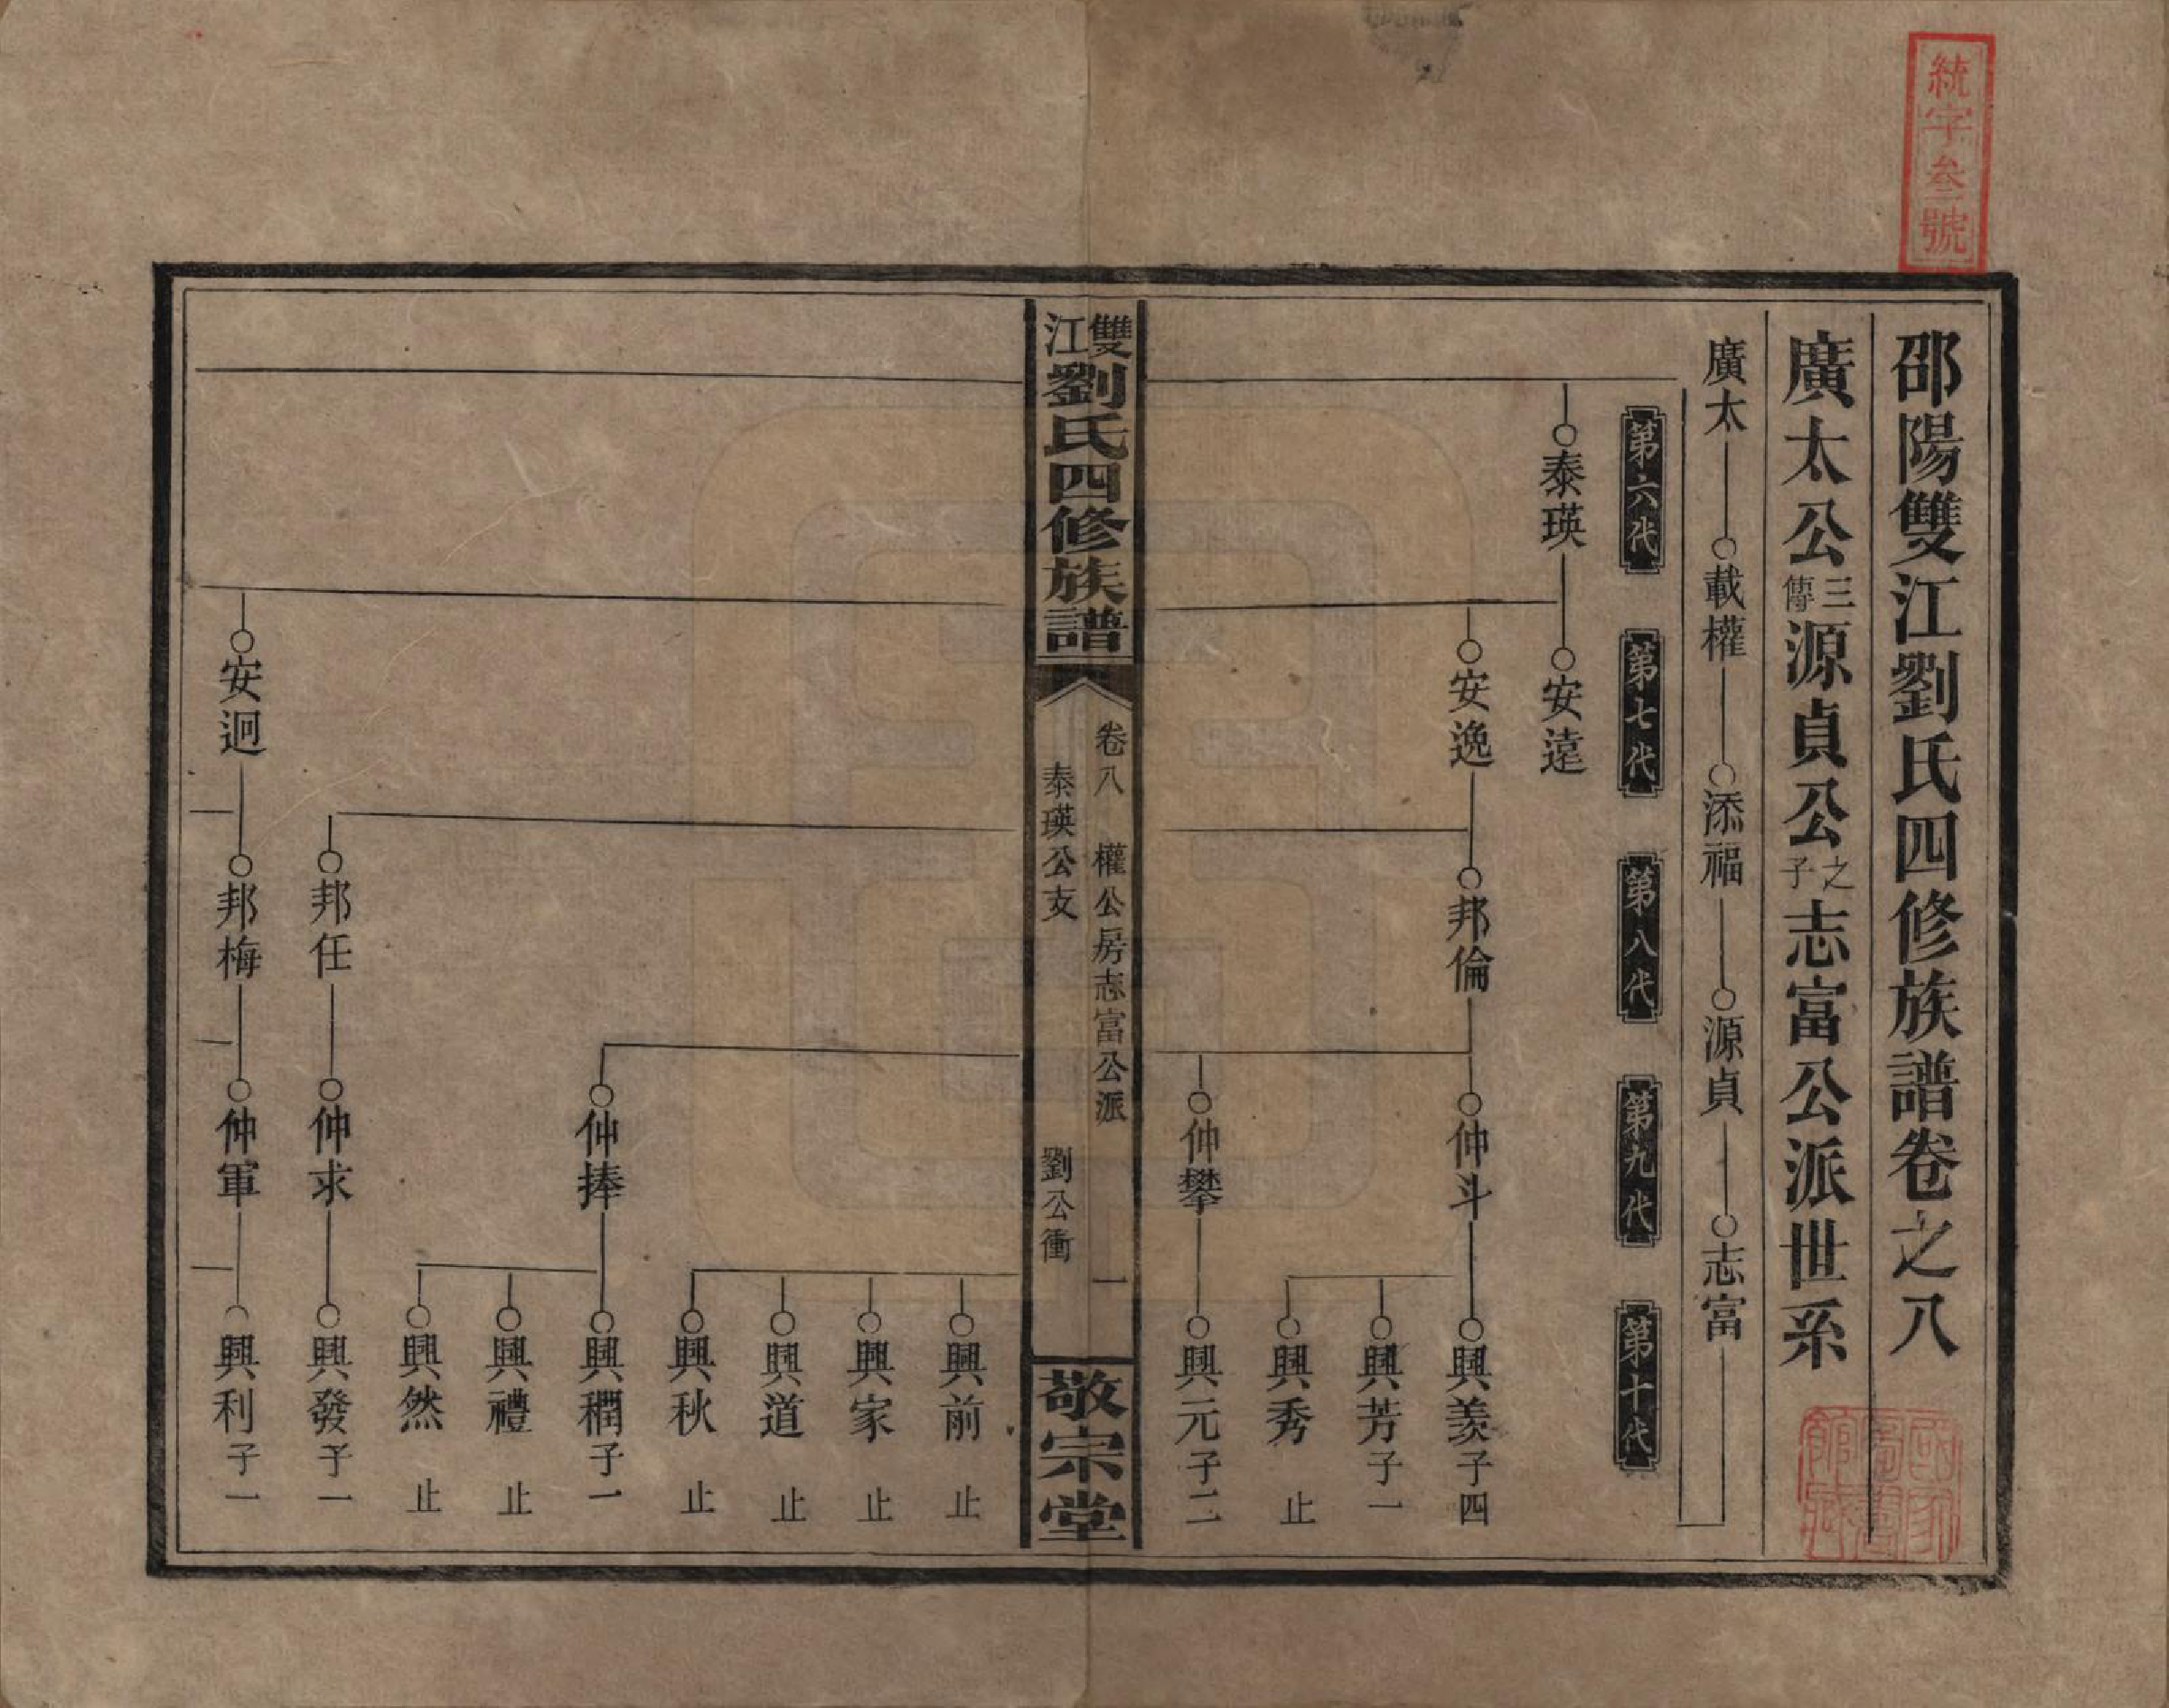 統字叁號
邵陽雙江劉氏四修族譜卷之八
廣太公三傳源貞公之子志富公派世系
廣太 載權 添福 源貞 志富
第六代 第七代 第八代 第九代 第十代
泰瑛 安遠
安逸 邦倫 仲斗 興羨子四
興芳子一
興秀 止
仲攀 興元子二
雙江劉氏四修族譜
卷八 權公房志富公派 一
泰瑛公支 劉公衝
敬宗堂
興前 止
興家 止
興道 止
興秋 止
仲捧 興穪子一
興禮 止
興然 止
邦任 仲求 興發子一
安迴 邦梅 仲軍 興利子一